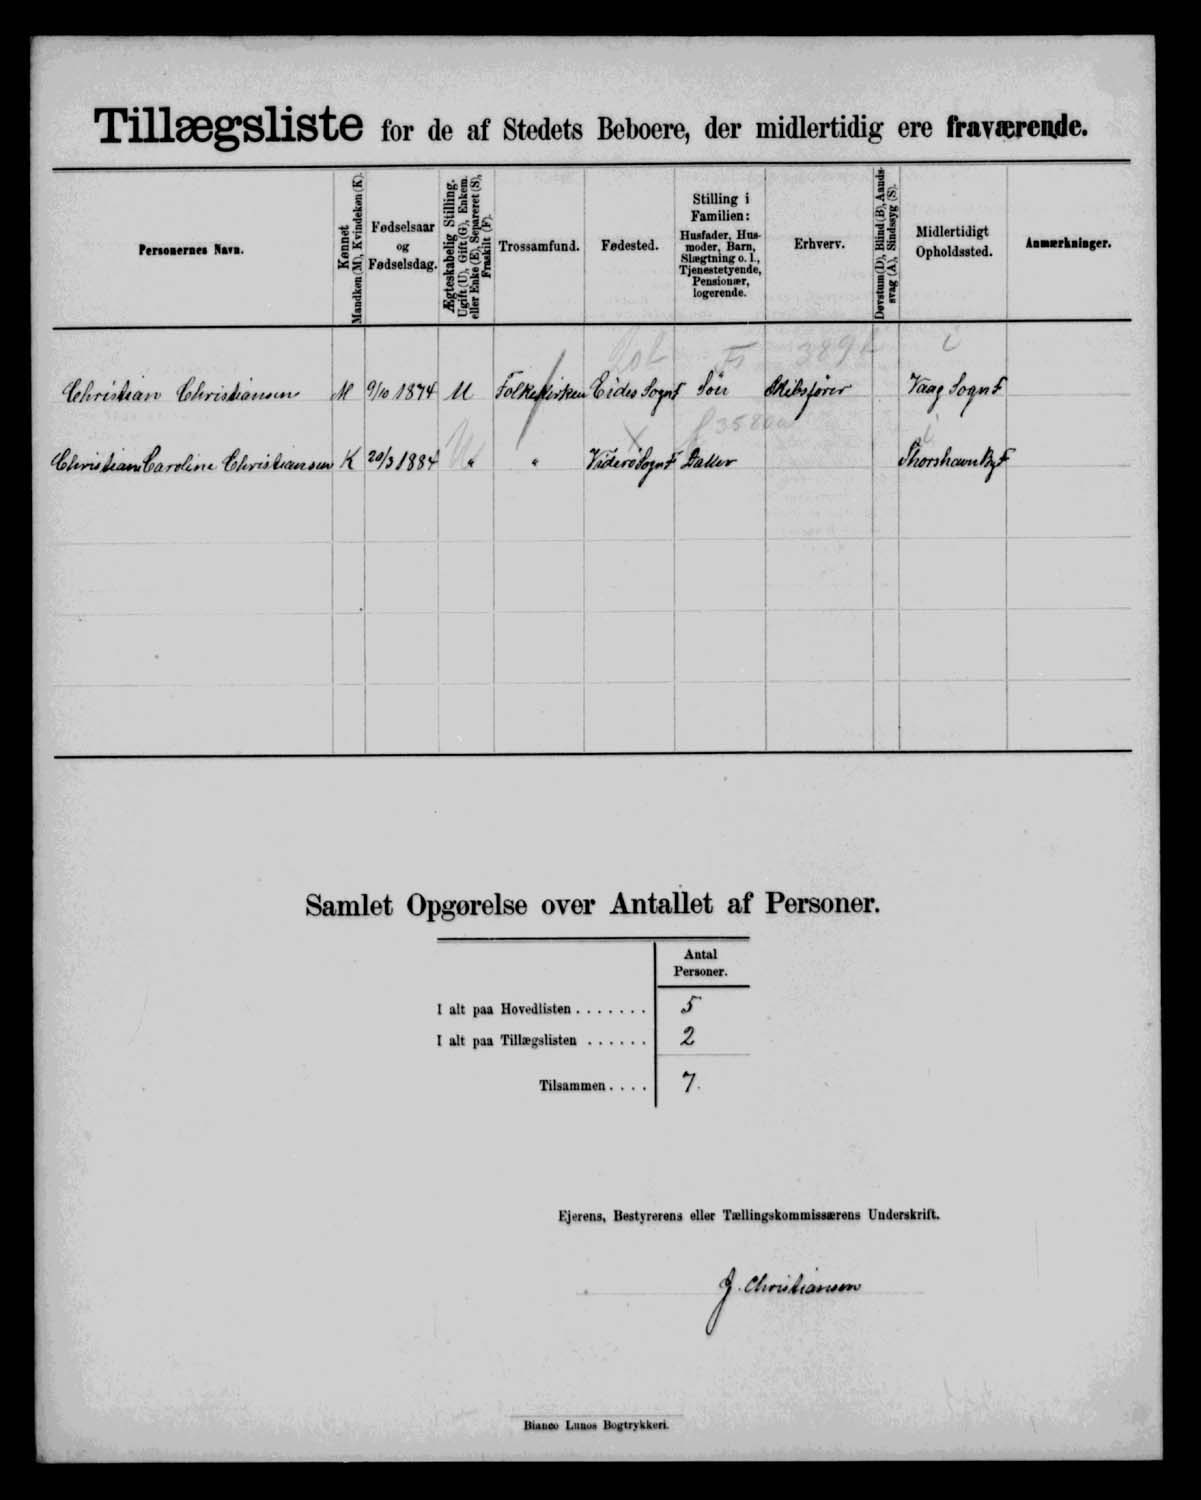 Tillægsliste for de af Stedets Beboere, der midlertidig ere fraværende.
Personernes Navn.
Kønnet
Mandkøn (M), Kvindekøn (K).
Fødselsaar
og
Fødselsdag.
Ægteskabelig Stilling.
Ugift (U), Gift (G), Enkem.
eller Enke (E), Separeret (S),
Fraskilt (F).
Trossamfund.
Fødested.
Stilling i
Familien:
Husfader, Hus-
moder, Barn,
Slægtning o. l.,
Tjenestetyende,
Pensionær,
logerende.
Erhverv.
Døvstum (D), Blind (B), Aands-
svag (A), Sindssyg (S).
Midlertidigt
Opholdssted.
Anmærkninger.
Christian Christiansen M 9/10 1874 U Folkekirken Eides Sogn F Søn Skibsfører Vaag Sogn F
Christiane Caroline Christiansen K 20/3 1884 " " Viderö Sogn F Datter Thorshavn By F
Samlet Opgørelse over Antallet af Personer.
Antal
Personer.
I alt paa Hovedlisten ....... 5
I alt paa Tillægslisten ...... 2
Tilsammen .... 7.
Ejerens, Bestyrerens eller Tællingskommissærens Underskrift.
J. Christiansen
Bianco Lunos Bogtrykkeri.